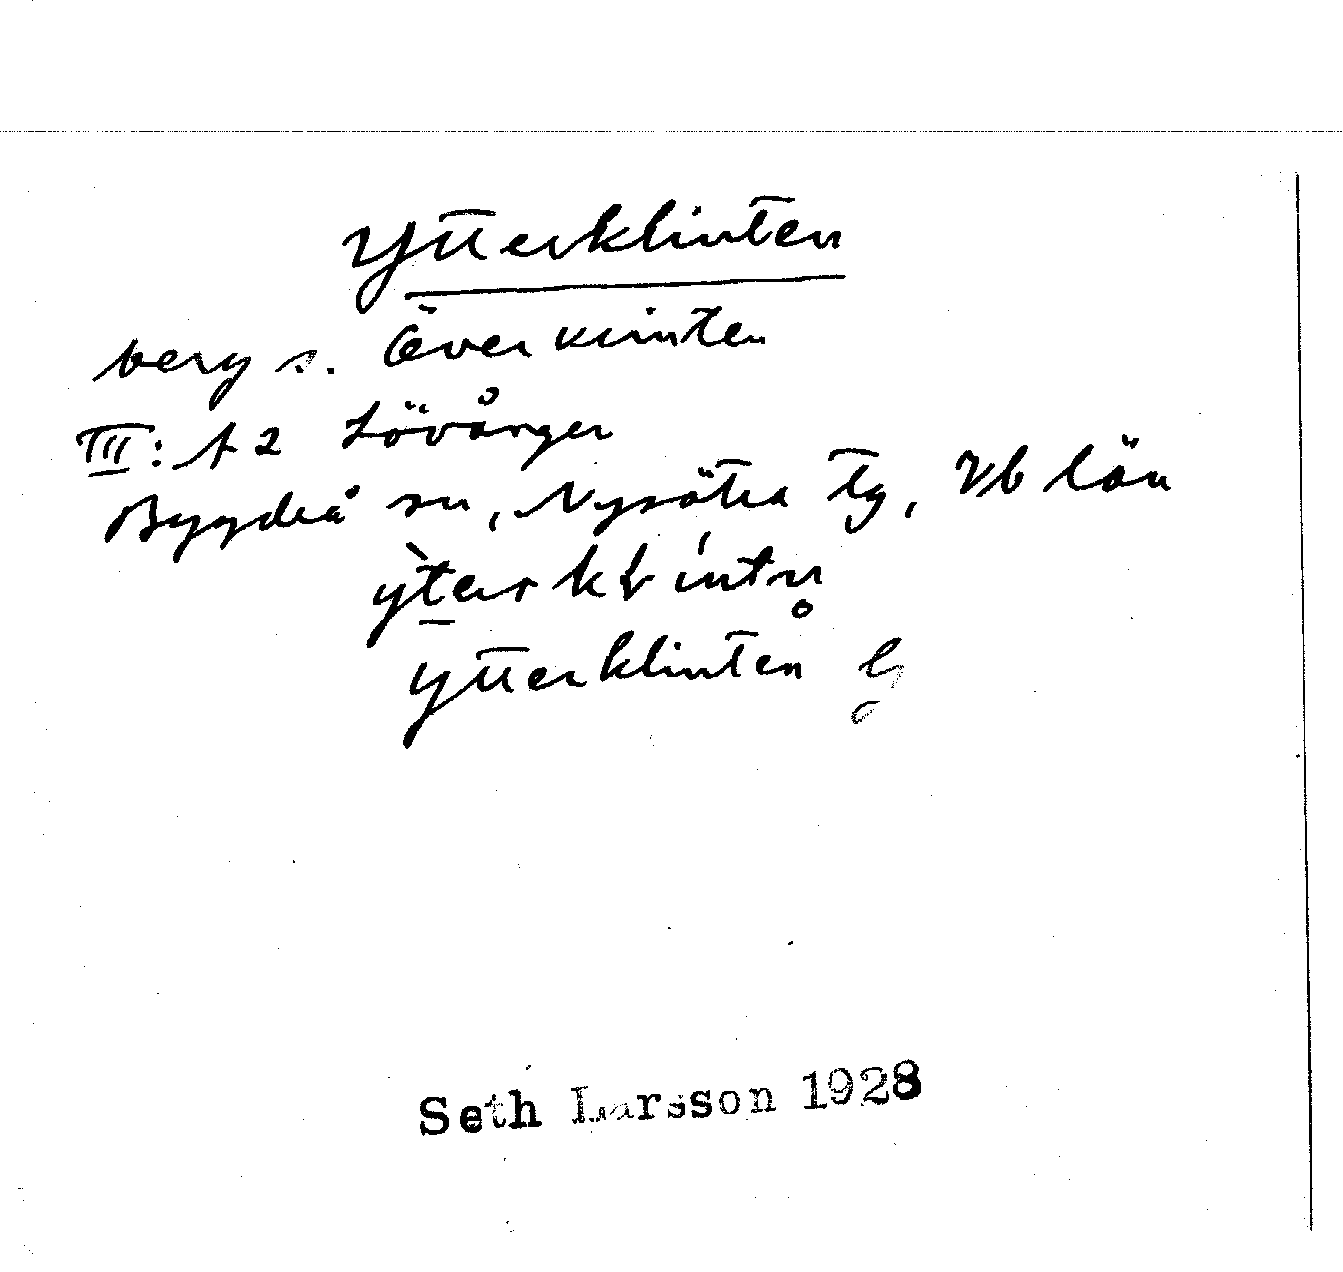 Ytterklinten
berg s. Överklinten
III: A 2 Lövånger
Bygdeå sn, Nysätra tg, Vb län
Ytterklinten
Seth Larsson 1928